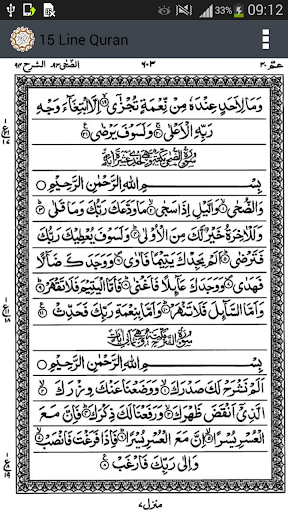 33% 09:12
15 Line Quran
الشرح ٩٤ الضحى ٩٣ ٦٠٣ عم ٣٠
وَمَا لِاَحَدٍ عِنْدَهٗ مِنْ نِّعْمَةٍ تُجْزٰٓى ۙ‏ اِلَّا ابْتِغَآءَ وَجْهِ
رَبِّهِ الْاَعْلٰى ۚ‏ وَلَسَوْفَ يَرْضٰى
بِسْمِ اللّٰهِ الرَّحْمٰنِ الرَّحِيْمِ
وَالضُّحٰى ۙ‏ وَالَّيْلِ اِذَا سَجٰى ۙ‏ مَا وَدَّعَكَ رَبُّكَ وَمَا قَلٰى
وَلَلْاٰخِرَةُ خَيْرٌ لَّكَ مِنَ الْاُوْلٰى وَلَسَوْفَ يُعْطِيْكَ رَبُّكَ
فَتَرْضٰى اَلَمْ يَجِدْكَ يَتِيْمًا فَاٰوٰى وَوَجَدَكَ ضَآلًّا
فَهَدٰى وَوَجَدَكَ عَآئِلًا فَاَغْنٰى فَاَمَّا الْيَتِيْمَ فَلَا تَقْهَرْ
وَاَمَّا السَّآئِلَ فَلَا تَنْهَرْ وَاَمَّا بِنِعْمَةِ رَبِّكَ فَحَدِّثْ
بِسْمِ اللّٰهِ الرَّحْمٰنِ الرَّحِيْمِ
اَلَمْ نَشْرَحْ لَكَ صَدْرَكَ وَوَضَعْنَا عَنْكَ وِزْرَكَ
الَّذِيْٓ اَنْقَضَ ظَهْرَكَ وَرَفَعْنَا لَكَ ذِكْرَكَ فَاِنَّ مَعَ
الْعُسْرِ يُسْرًا اِنَّ مَعَ الْعُسْرِ يُسْرًا فَاِذَا فَرَغْتَ فَانْصَبْ
وَاِلٰى رَبِّكَ فَارْغَبْ
منزل ٧